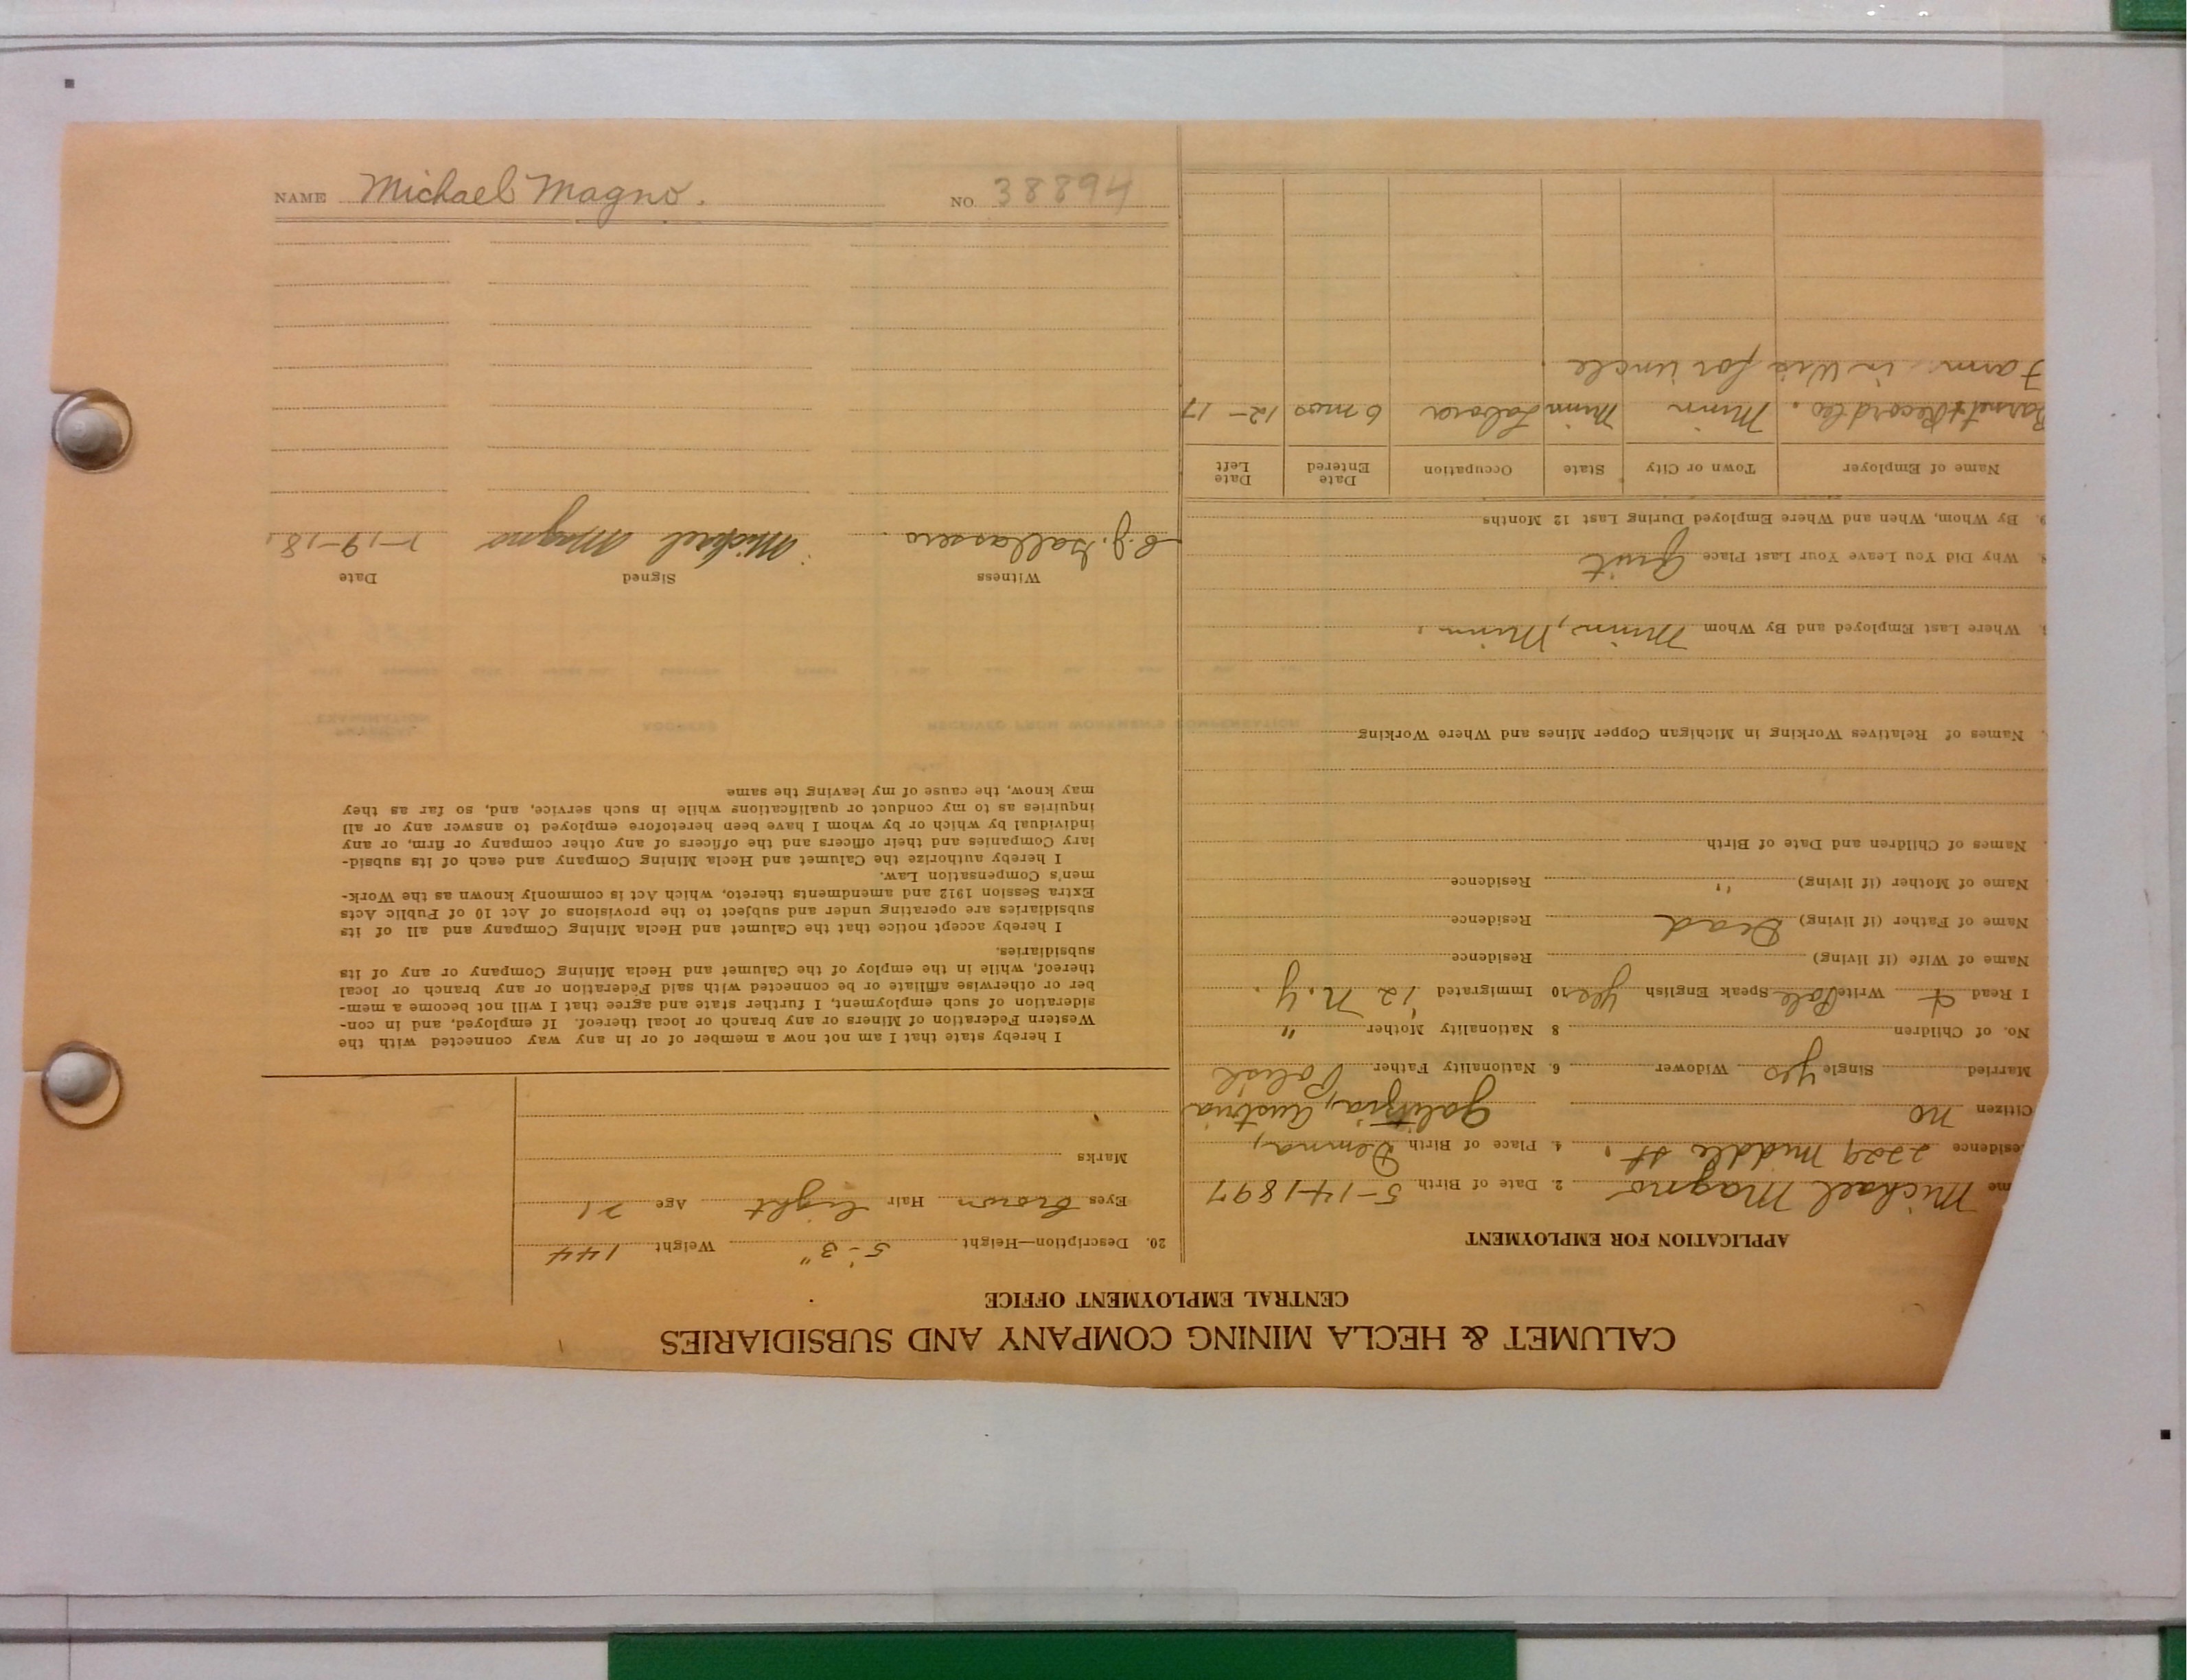 NAME Michael Magno. NO. 38894
CALUMET & HECLA MINING COMPANY AND SUBSIDIARIES
CENTRAL EMPLOYMENT OFFICE
APPLICATION FOR EMPLOYMENT
me Michael Magno 2. Date of Birth 5-14-1897
esidence 2229 Middle St. 4. Place of Birth Demna,
Citizen no Galitzia, Austria
Married Single yes Widower 6. Nationality Father Polish
No. of Children 8 Nationality Mother "
I Read & Write Pole Speak English yes 10 Immigrated '12 N.Y.
Name of Wife (if living) Residence
Name of Father (if living) Dead Residence
Name of Mother (if living) " Residence
Names of Children and Date of Birth
Names of Relatives Working in Michigan Copper Mines and Where Working
Where Last Employed and By Whom Minn, Minn.
Why Did You Leave Your Last Place Quit
9. By Whom, When and Where Employed During Last 12 Months
Name of Employer Town or City State Occupation Date Entered Date Left
Barnet & Record Co. Minn Minn Labora 6 mos 12-17
Farm in Wis for uncle.
20. Description—Height 5'-3" Weight 144
Eyes brown Hair light Age 21
Marks
I hereby state that I am not now a member of or in any way connected with the
Western Federation of Miners or any branch or local thereof. If employed, and in con-
sideration of such employment, I further state and agree that I will not become a mem-
ber or otherwise affiliate or be connected with said Federation or any branch or local
thereof, while in the employ of the Calumet and Hecla Mining Company or any of its
subsidiaries.
I hereby accept notice that the Calumet and Hecla Mining Company and all of its
subsidiaries are operating under and subject to the provisions of Act 10 of Public Acts
Extra Session 1912 and amendments thereto, which Act is commonly known as the Work-
men's Compensation Law.
I hereby authorize the Calumet and Hecla Mining Company and each of its subsid-
iary Companies and their officers and the officers of any other company or firm, or any
individual by which or by whom I have been heretofore employed to answer any or all
inquiries as to my conduct or qualifications while in such service, and, so far as they
may know, the cause of my leaving the same
Witness Signed Date
Michael Magno 1-19-18.